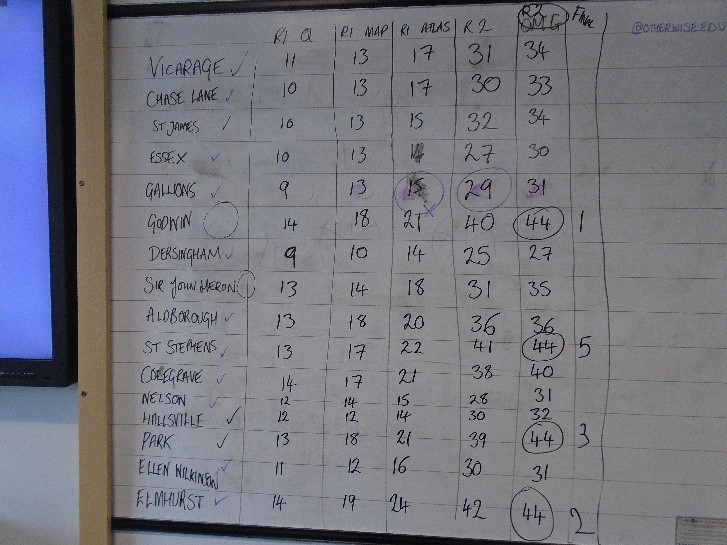 R1 Q R1 MAP R1 ATLAS R2 R2 OMG Final @OTHERWISE.EDU
VICARAGE ✓ 11 13 17 31 34
CHASE LANE ✓ 10 13 17 30 33
ST JAMES ✓ 10 13 15 32 34
ESSEX ✓ 10 13 14 27 30
GALLIONS ✓ 9 13 15 29 31
GODWIN 14 18 21 40 44 1
DERSINGHAM ✓ 9 10 14 25 27
SIR JOHN HERON 13 14 18 31 35
ALDBOROUGH ✓ 13 18 20 36 36
ST STEPHENS ✓ 13 17 22 41 44 5
COLEGRAVE ✓ 14 17 21 38 40
NELSON ✓ 12 14 15 28 31
HALLSVILLE ✓ 12 12 14 30 32
PARK ✓ 13 18 21 39 44 3
ELLEN WILKINSON ✓ 11 12 16 30 31
ELMHURST ✓ 14 19 24 42 44 2